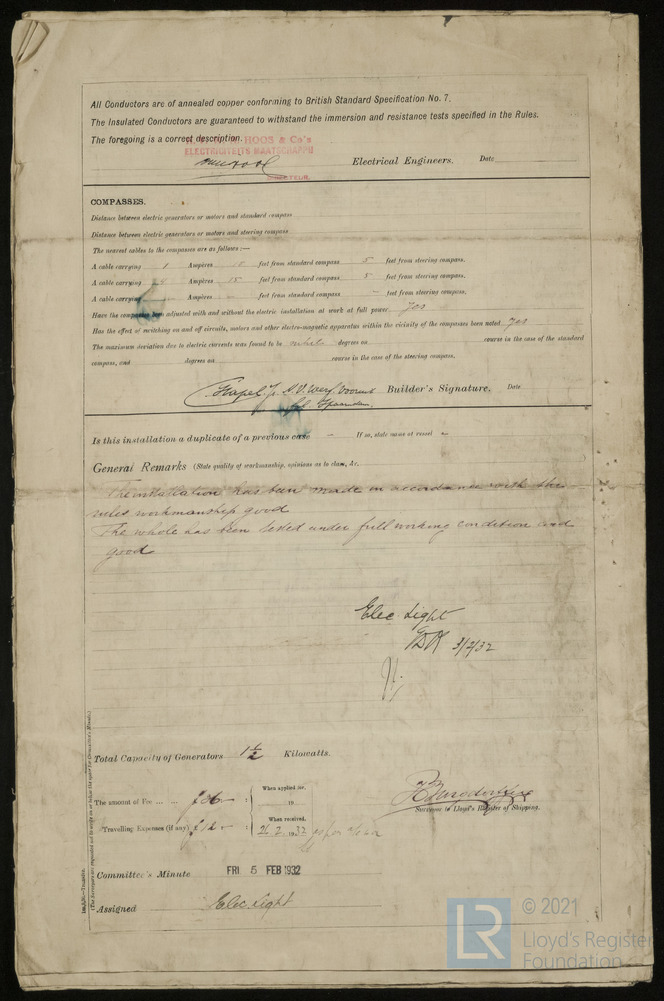 All Conductors are of annealed copper conforming to British Standard Specification No. 7.
The Insulated Conductors are guaranteed to withstand the immersion and resistance tests specified in the Rules.
The foregoing is a correct description.
HOOS & Co's
ELECTRICITEITS MAATSCHAPPIJ
DIRECTEUR.
Electrical Engineers. Date
COMPASSES.
Distance between electric generators or motors and standard compass
Distance between electric generators or motors and steering compass
The nearest cables to the compasses are as follows:—
A cable carrying Ampères feet from standard compass 5 feet from steering compass.
A cable carrying Ampères 15 feet from standard compass 5 feet from steering compass.
A cable carrying — Ampères — feet from standard compass — feet from steering compass.
Have the compasses been adjusted with and without the electric installation at work at full power. Yes
Has the effect of switching on and off circuits, motors and other electro-magnetic apparatus within the vicinity of the compasses been noted Yes
The maximum deviation due to electric currents was found to be degrees on course in the case of the standard
compass, and degrees on course in the case of the steering compass.
N.V. Werf Builder's Signature. Date
Is this installation a duplicate of a previous case — If so, state name of vessel —
General Remarks (State quality of workmanship, opinions as to class, &c.
The installation has been made in accordance with the
rules workmanship good
The whole has been tested under full working condition and
good
Elec. Light
3/2/32
Total Capacity of Generators 1½ Kilowatts.
The amount of Fee ... ... £ 36 — : When applied for,
19
Travelling Expenses (if any) £ 12 — : When received,
26.2 1932
Surveyor to Lloyd's Register of Shipping.
Committee's Minute FRI 5 FEB 1932
Assigned Elec. light
(The Surveyors are requested not to write on or below the space for Committee's Minute.)
© 2021
LR
Lloyd's Register
Foundation